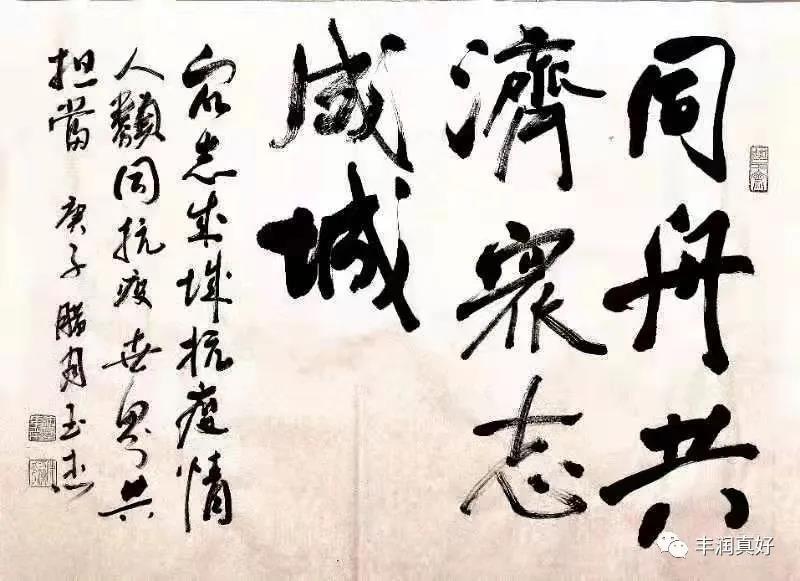 同舟共
濟衆志
成城
眾志成城抗疫情
人類同抗疫世界共
担當 庚子腊月玉杰
丰润真好